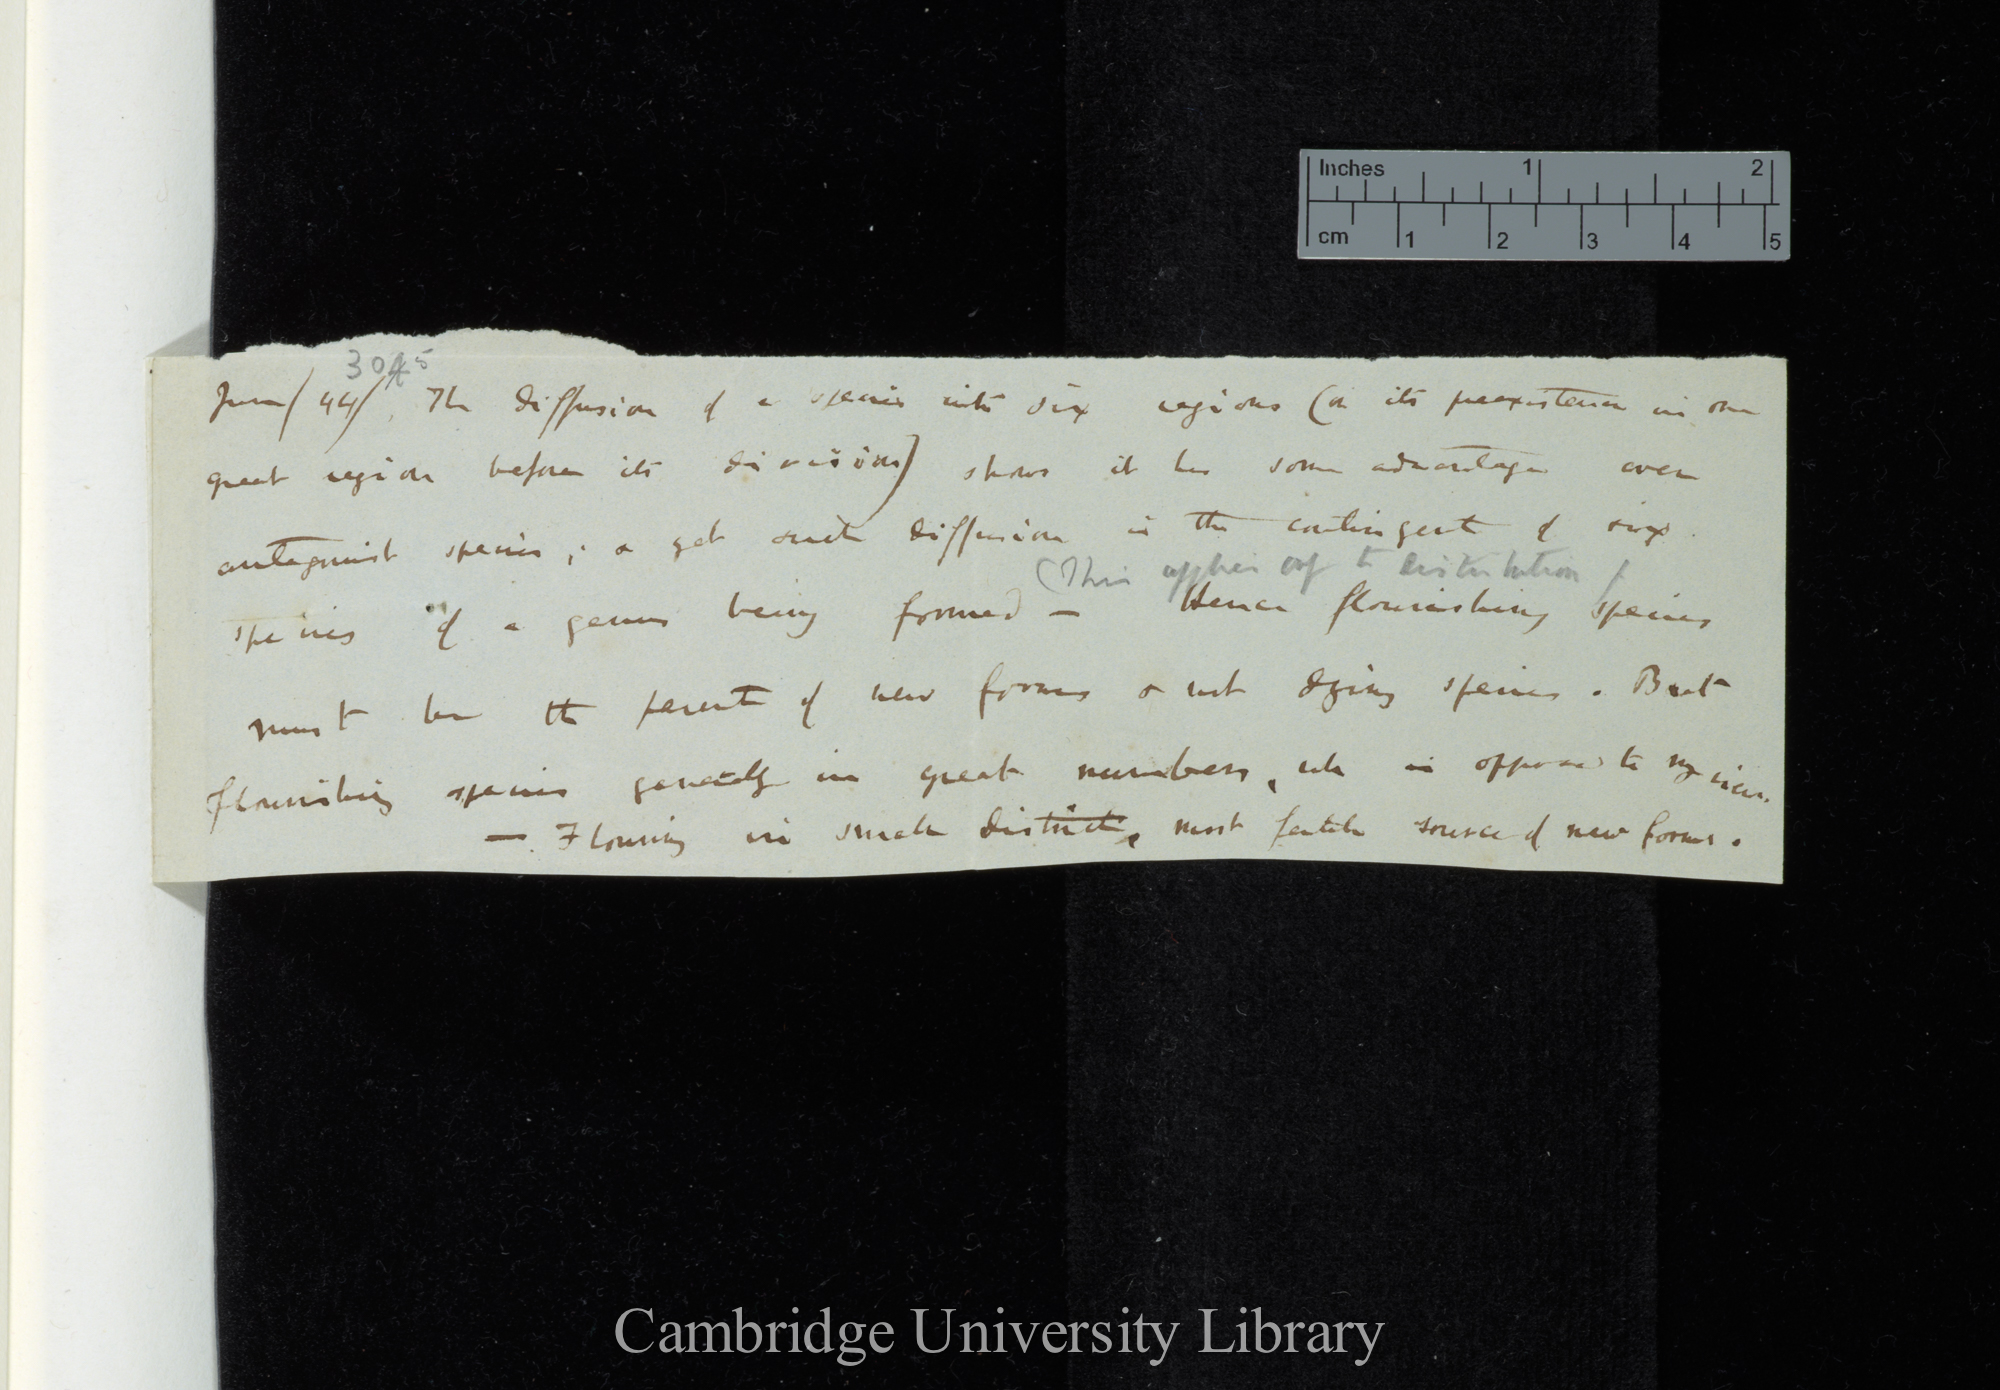 Inches 1 2
cm 1 2 3 4 5
3045
June/44/. The diffusion of a species into six regions (or its preexistence in one
great region before its division) shows it has some advantage over
antagonist species, ; & yet such diffusion is the contingent of six
(This applies only to distribution)
species of a genus being formed — Hence flourishing species
must be the parent of new forms & not dying species. But
flourishing species generally in great numbers, wh is opposed to my view.
— Flouring in small districts, most fertile source of new forms.
Cambridge University Library